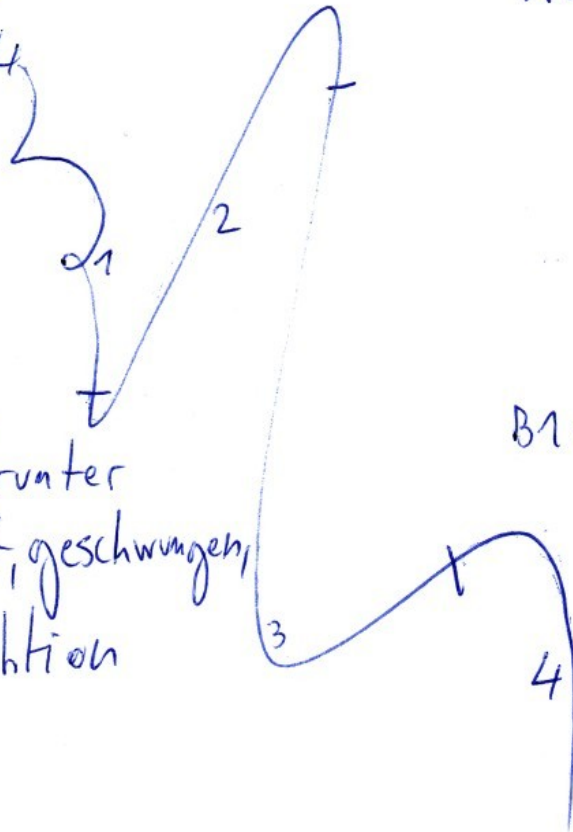 1
2
B1
runter
geschwungen,
3
4